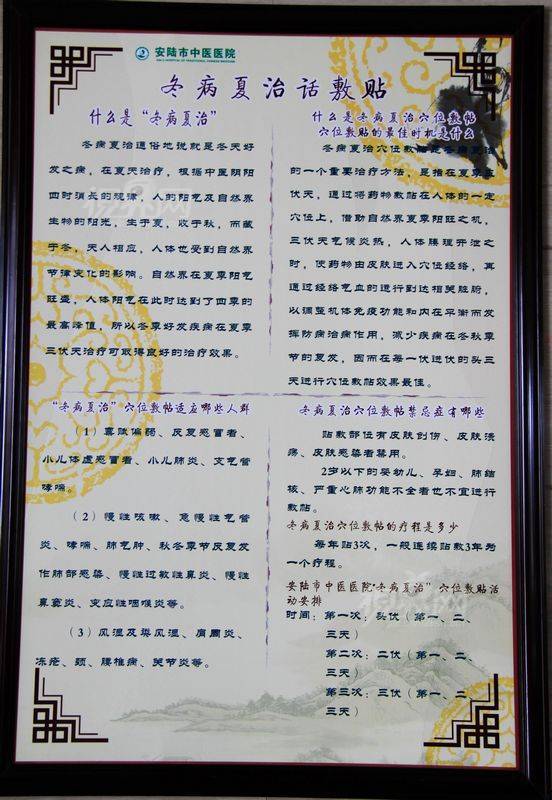 安陆市中医医院
冬病夏治话敷贴
什么是“冬病夏治”
冬病夏治通俗地说就是冬天好
发之病，在夏天治疗，根据中医阴阳
四时消长的规律，人的阳气及自然界
生物的阳光，生于夏，收于秋，而藏
于冬，天人相应，人体也受到自然界
节律变化的影响。自然界在夏季阳气
旺盛，人体阳气在此时达到了四季的
最高峰值，所以冬季好发疾病在夏季
三伏天治疗可取得良好的治疗效果。
什么是冬病夏治穴位敷帖
穴位敷贴的最佳时机是什么
冬病夏治穴位敷帖是冬病夏治
的一个重要治疗方法，是指在夏季三
伏天，通过将药物敷帖在人体的一定
穴位上，借助自然界夏季阳旺之机，
三伏天气候炎热，人体腠理开泄之
时，使药物由皮肤进入穴位经络，再
通过经络气血的运行到达相关脏腑，
以调整机体免疫功能和内在平衡而发
挥防病治病作用，减少疾病在冬秋季
节的复发，因而在每一伏进伏的头三
天进行穴位敷帖效果最佳。
“冬病夏治”穴位敷帖适应哪些人群
（1）禀赋偏弱、反复感冒者、
小儿体虚感冒者、小儿肺炎、支气管
哮喘。
（2）慢性咳嗽、急慢性气管
炎、哮喘、肺气肿、秋冬季节反复发
作肺部感染、慢性过敏性鼻炎、慢性
鼻窦炎、变应性咽喉炎等。
（3）风湿及类风湿、肩周炎、
冻疮、颈、腰椎病、关节炎等。
冬病夏治穴位敷帖禁忌症有哪些
贴敷部位有皮肤创伤、皮肤溃
疡、皮肤感染者禁用。
2岁以下的婴幼儿、孕妇、肺结
核、严重心肺功能不全者也不宜进行
敷帖。
冬病夏治穴位敷帖的疗程是多少
每年贴3次，一般连续贴敷3年为
一个疗程。
安陆市中医医院“冬病夏治”穴位敷贴活
动安排
时间：第一次：头伏（第一、二、
三天）
第二次：二伏（第一、二、
三天）
第三次：三伏（第一、二、
三天）